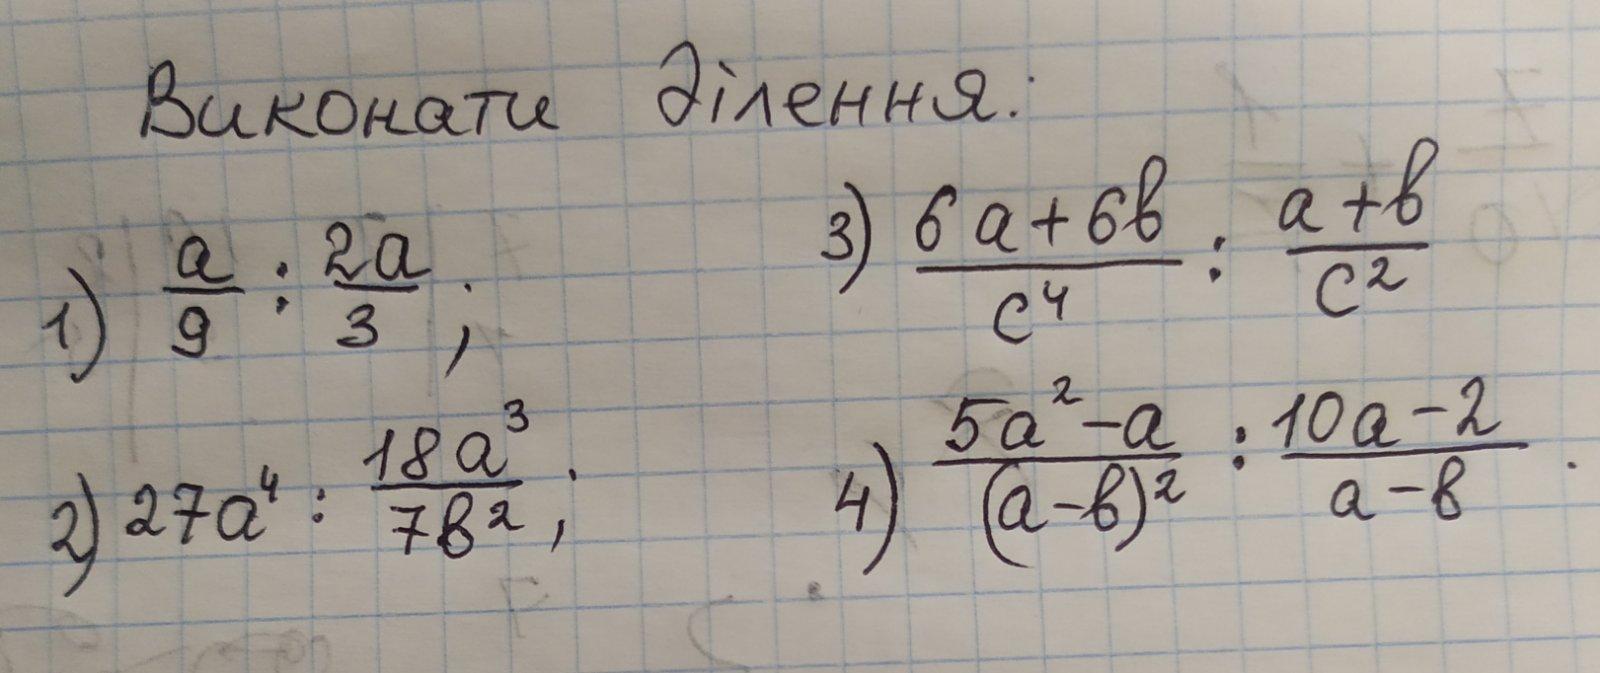 Виконати ділення:
1) a/9 : 2a/3 ;
2) 27a⁴ : 18a³/7b² ;
3) 6a+6b/c⁴ : a+b/c²
4) 5a²-a/(a-b)² : 10a-2/a-b .